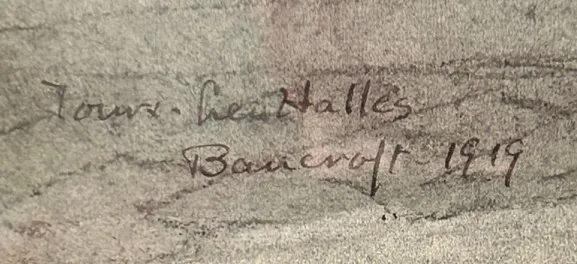 Tours. Les Halles
Bancroft - 1919